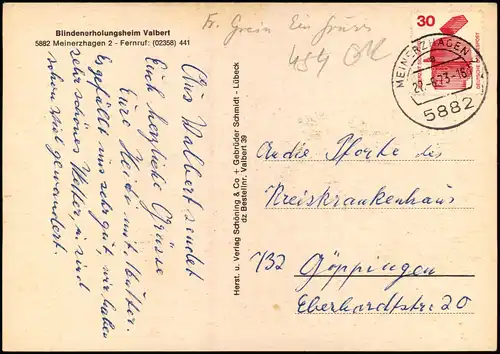 Blindenerholungsheim Valbert
5882 Meinerzhagen 2 - Fernruf: (02358) 441
Fr. Grein Ein
454
30
DEUTSCHE BUNDESPOST
MEINERZHAGEN 2
22.-6.73-16
5882
Aus Valbert sendet
Euch herzliche Grüsse
Eure Heide mit Mutter.
Es gefällt uns sehr gut, wir haben
sehr schönes Wetter, u. sind
schon viel gewandert.
Herst. u. Verlag Schöning & Co + Gebrüder Schmidt - Lübeck
dz Bestellnr. Valbert 39
An die Pforte des
Kreiskrankenhaus
732 Göppingen
Eberhardtstraße 20